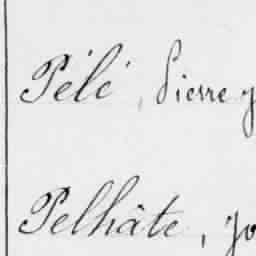 Pélé, Pierre
Pelhâte,